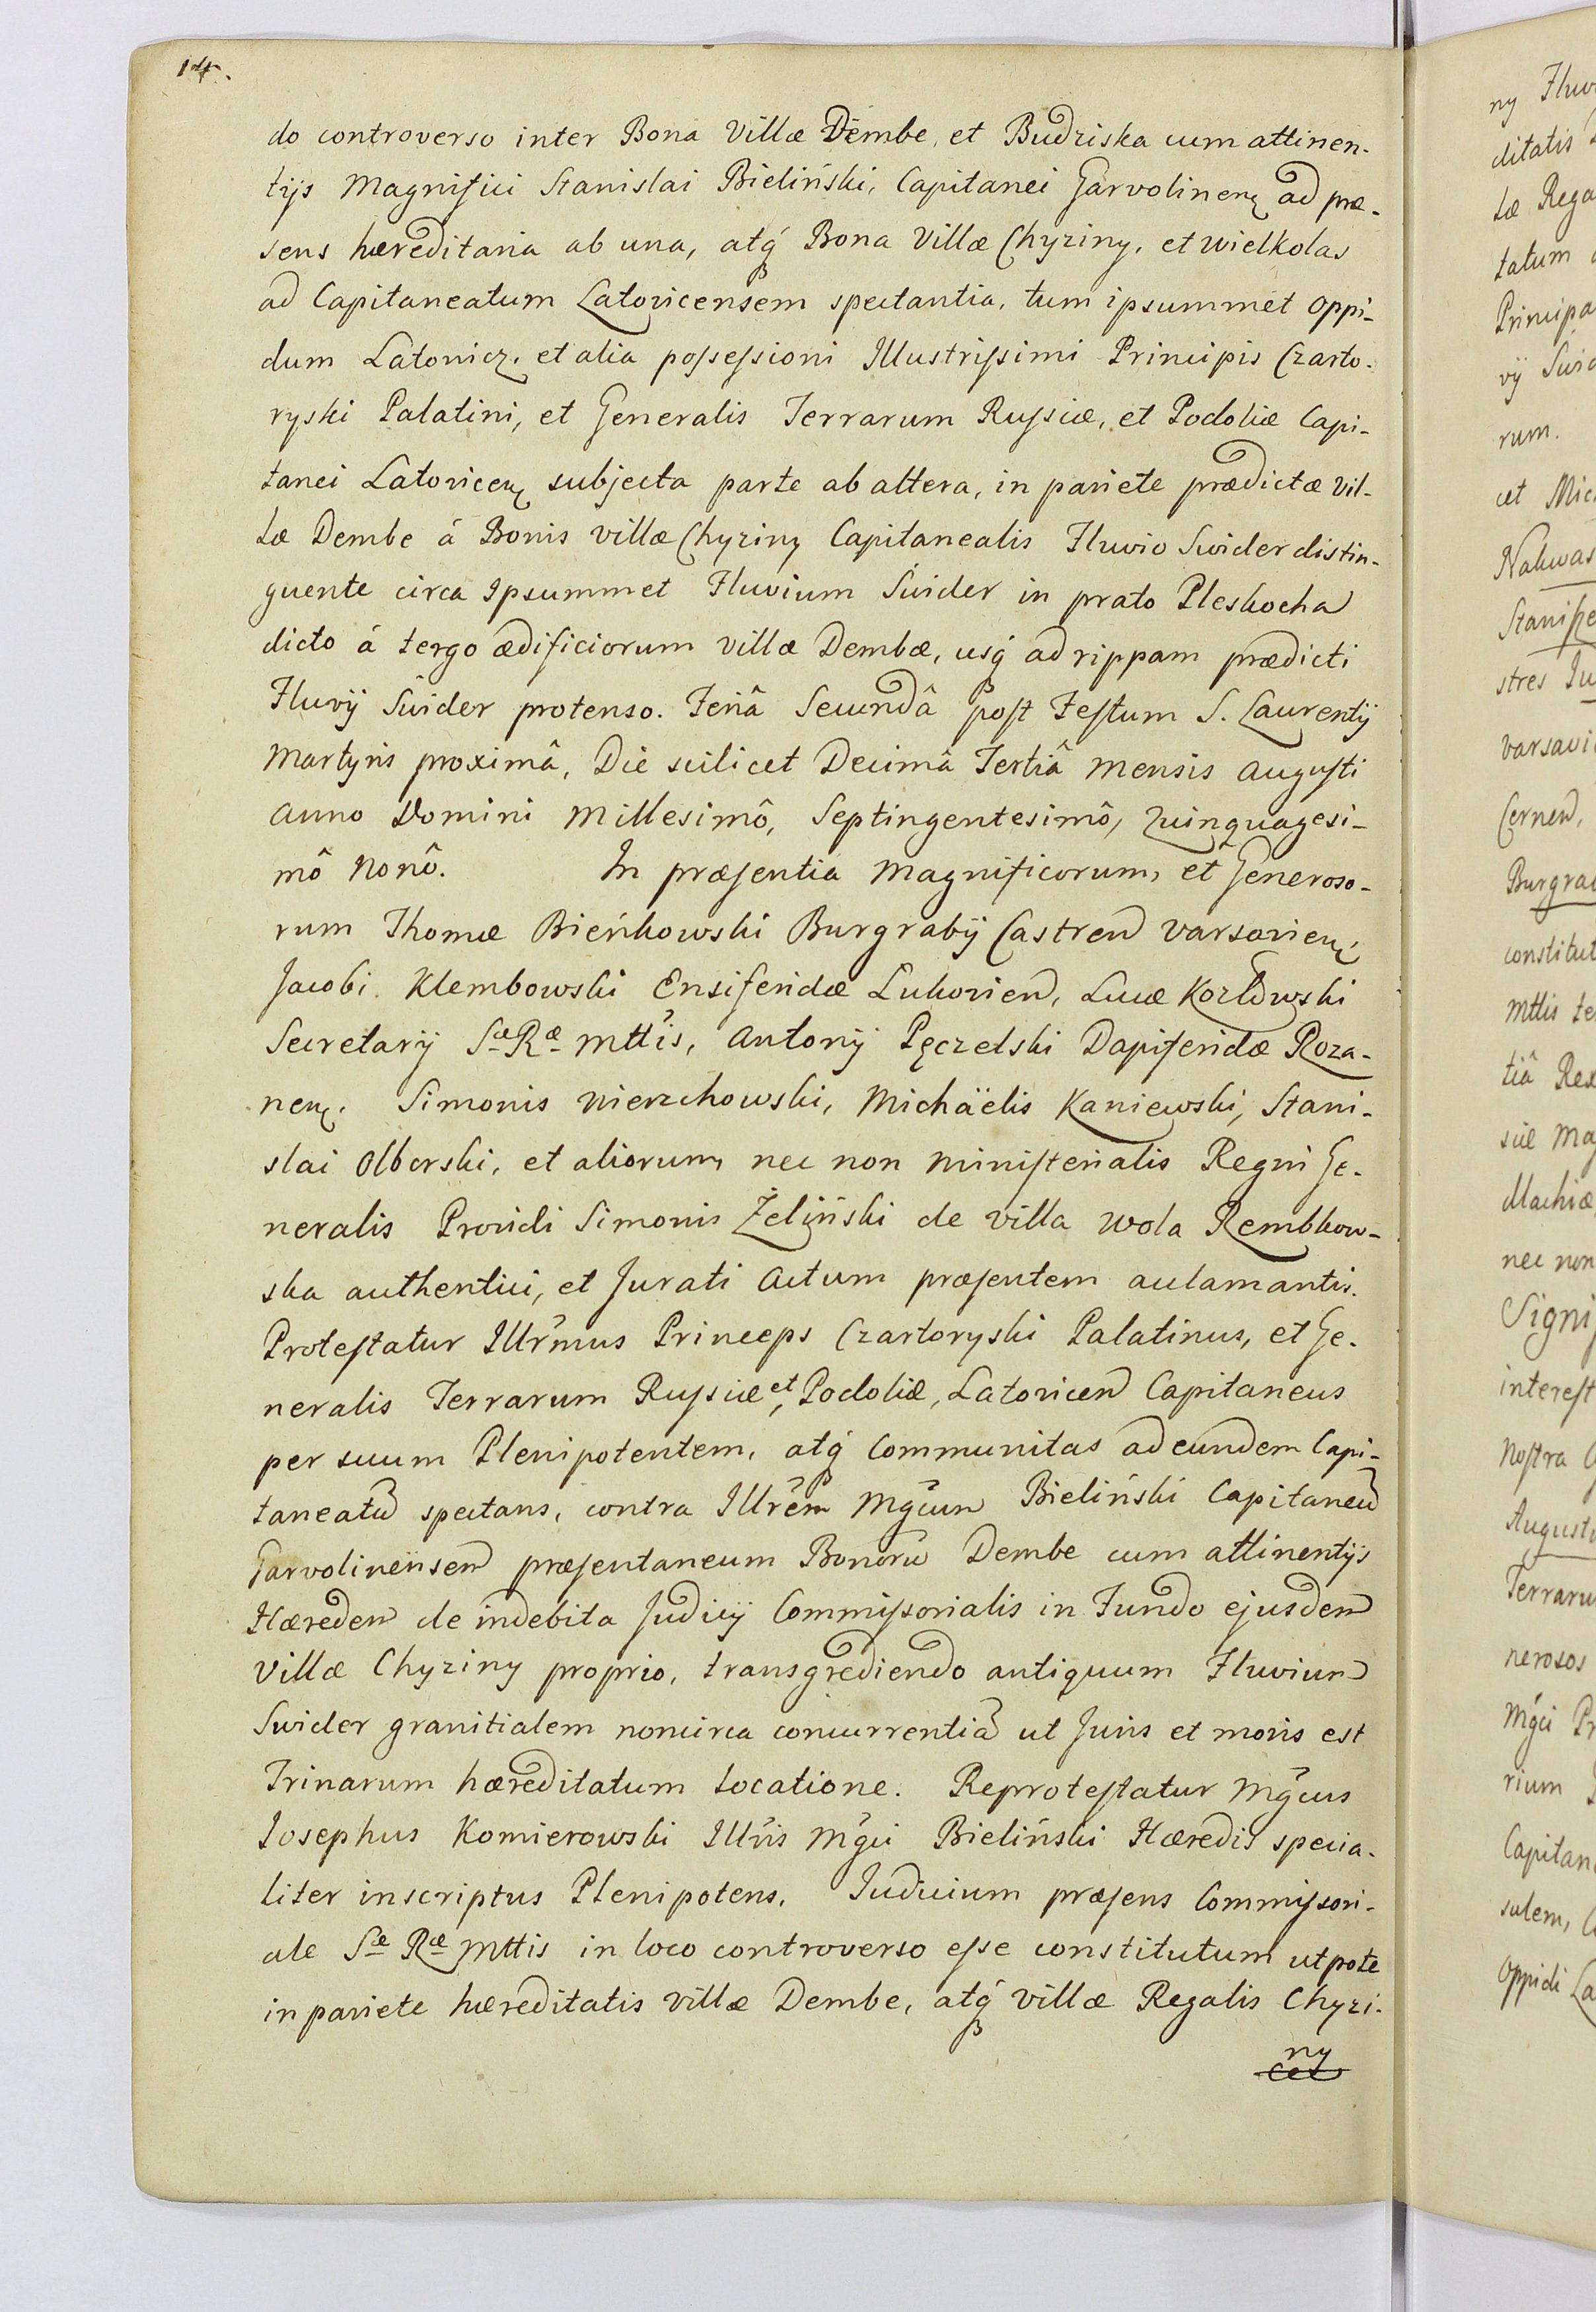 14.
do controverso inter Bona Villæ Dembe, et Budziska cum attinen-
tijs Magnifici Stanislai Bieliński, Capitanei Garvolinen, ad præ-
sens hæreditaria ab una, atq́ Bona Villæ Chyziny, et Wielkolas
ad Capitaneatum Latovicensem spectantia, tum ipsummet Oppi-
dum Latowicz, et alia possessioni Illustrissimi Principis Czarto-
ryski Palatini, et Generalis Terrarum Russiæ, et Podoliæ Capi-
tanei Latovicen, subjecta parte ab altera, in pariete prædictæ Vil-
læ Dembe á Bonis villæ Chyziny Capitanealis Fluvio Swider distin-
guente circa Ipsummet Fluvium Swider in prato Pleskocha
dicto á tergo ædificiorum villæ Dembæ, usq́ ad rippam prædicti
Fluvij Swider protenso. Feriâ Secundâ post Festum S. Laurentij
Martyris proximâ, Die scilicet Decimâ Tertiâ mensis Augusti
Anno Domini Millesimô, Septingentesimô, Quinquagesi-
mô Nonô. In præsentia Magnificorum, et Generoso-
rum Thomæ Bieńkowski Burgrabij Castren Varsavien,
Jacobi Klembowski Ensiferidæ Lukovien, Lucæ Kozłowski
Secretarij Sæ Ræ Mttis, Antonij Pęczelski Dapiferidæ Roza-
nen. Simonis Wierzchowski, Michäelis Kaniewski, Stani-
slai Olborski, et aliorum, nec non Ministerialis Regni Ge-
neralis Providi Simonis Żeliński de villa Wola Rembkow-
ska authentici, et Jurati Actum præsentem aclamantis.
Protestatur Illrm̃us Princeps Czartoryski Palatinus, et Ge-
neralis Terrarum Russiæ et, Podoliæ, Latovicen Capitaneus
per suum Plenipotentem, atq́ Communitas ad eundem Capi-
taneatũ spectans, contra Illrem̃ Mgcum̃ Bieliński Capitaneũ
Garvolinensem præsentaneum Bonorũ Dembe cum attinentijs
Hæredem de indebita Judicij Commissorialis in Fundo ejusdem
Villæ Chyziny proprio, transgrediendo antiquum Fluvium
Swider granitialem noncirca concurrentiã ut Juris et moris est
Trinarum hæreditatum locatione. Reprotestatur Mgc̃us
Iosephus Komierowski Illrĩs Mgc̃i Bieliński Hæredis specia-
liter inscriptus Plenipotens, Iudicium præsens Commissori-
ale Sæ Ræ Mttis in loco controverso esse constitutum utpote
in pariete hæreditatis villæ Dembe, atq́ villæ Regalis Chyzi-
ny
ny Fluv
ditatis
læ Rega
tatum
Principa
vij Swid
rum.
et Mic
Nakwas
Stanisze
stres Ju
Varsavi
Cernen,
Burgrab
constitut
Mttis te
tiâ Rex
siæ Ma
Machiæ
nec non
Signi
interest
Nostra
Augusti
Terraru
nerosos
Mgci Pr
rium
Capitan
sulem,
Oppidi La